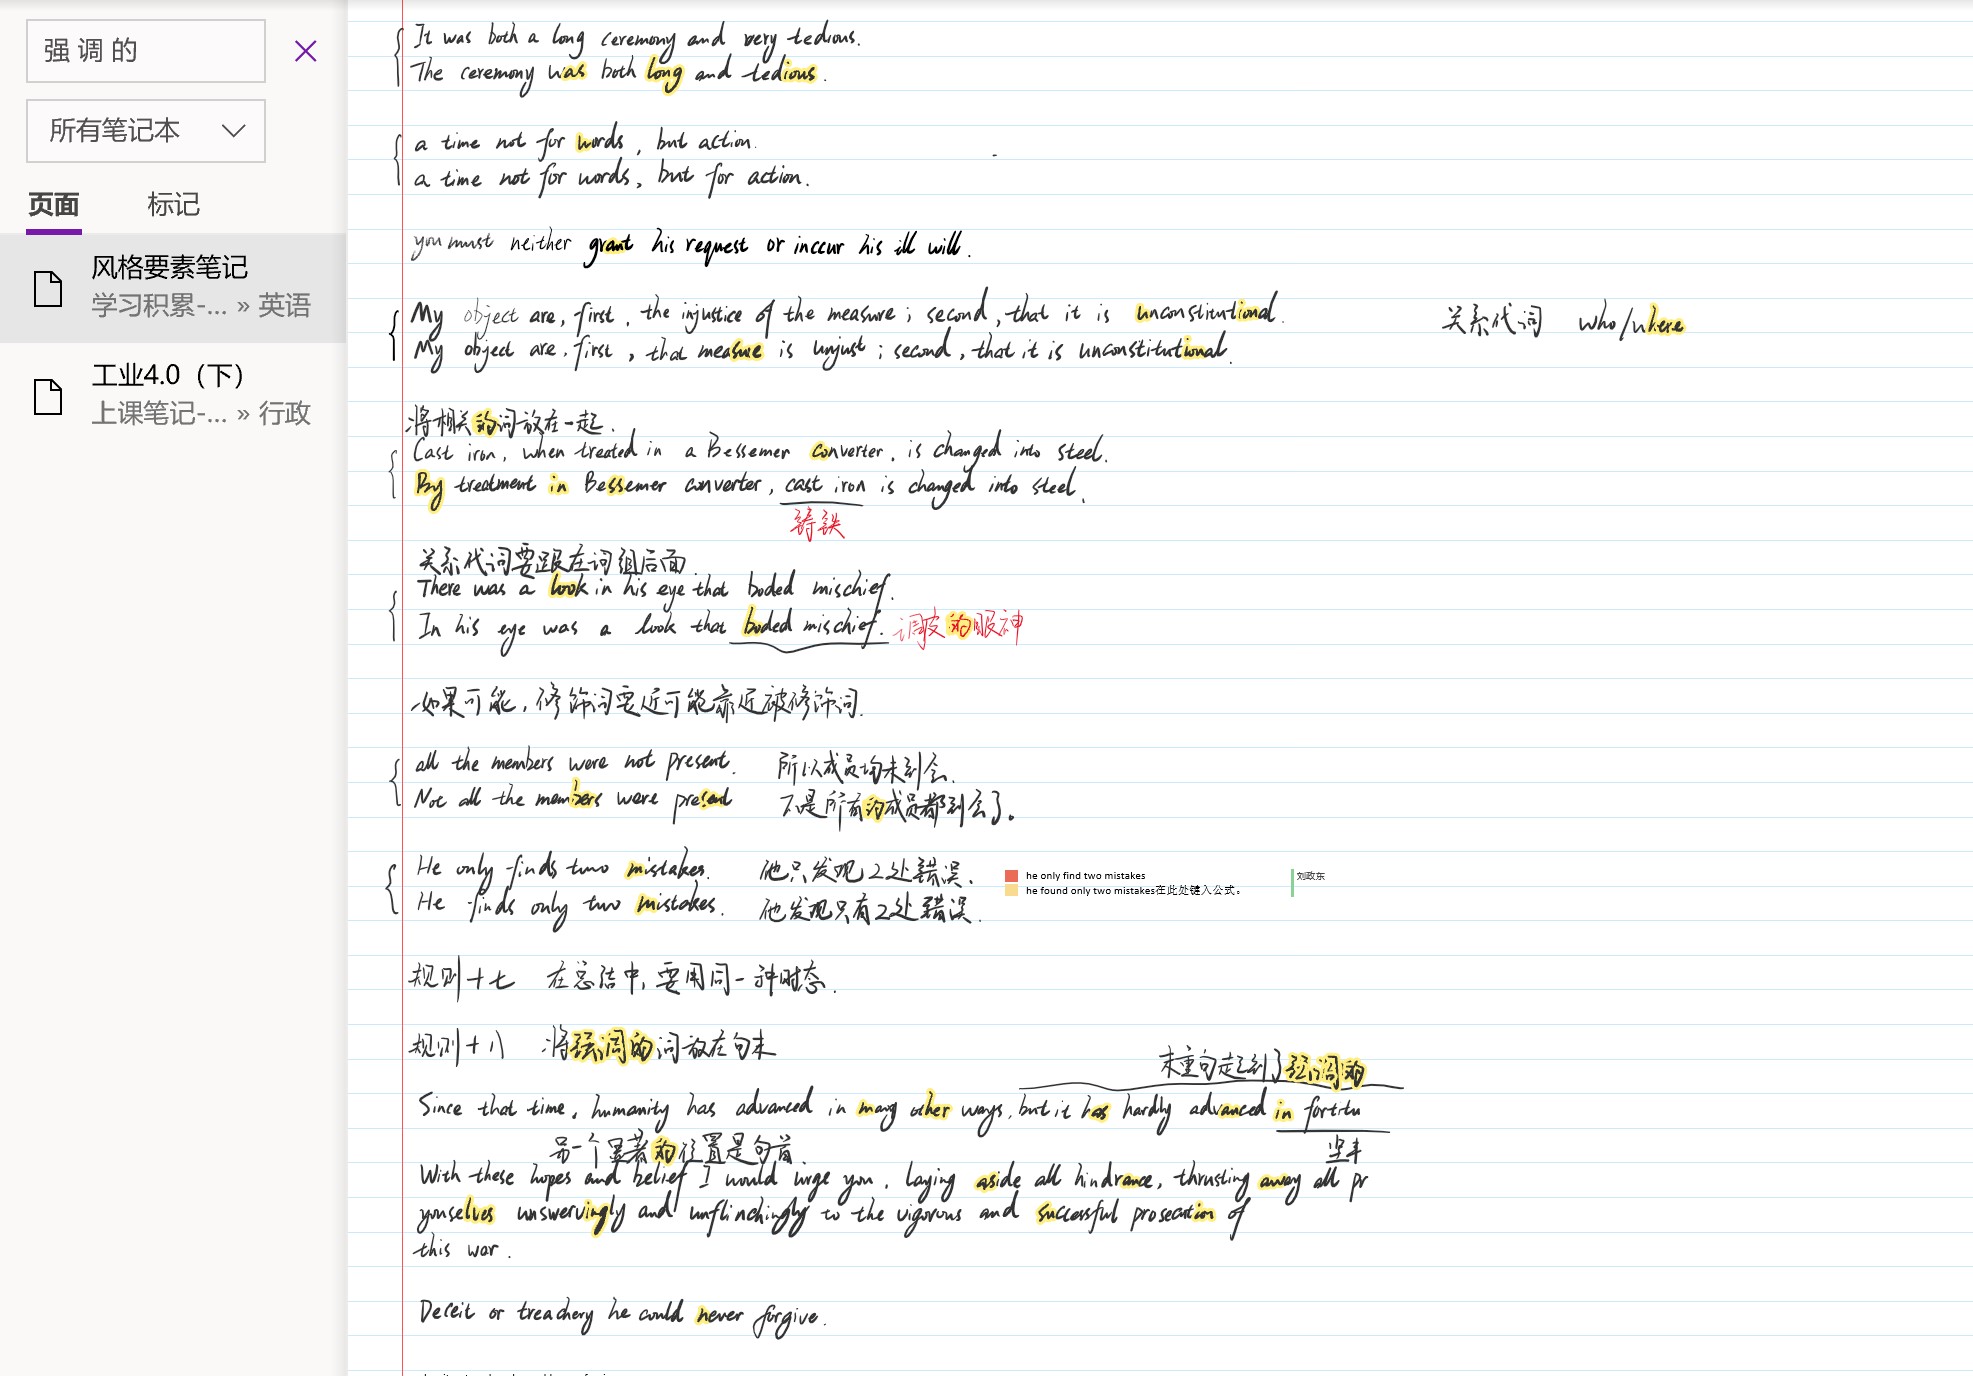 强 调 的
所有笔记本
页面 标记
风格要素笔记
学习积累-... » 英语
工业4.0（下）
上课笔记-... » 行政
It was both a long ceremony and very tedious.
The ceremony was both long and tedious.
a time not for words, but action.
a time not for words, but for action.
you must neither grant his request or inccur his ill will.
My object are, first, the injustice of the measure; second, that it is unconstitutional.
关系代词 who/where
My object are, first, that measure is unjust; second, that it is unconstitutional.
将相关的词放在一起.
Cast iron, when treated in a Bessemer converter, is changed into steel.
By treatment in Bessemer converter, cast iron is changed into steel.
铸铁
关系代词要跟在词组后面.
There was a look in his eye that boded mischief.
In his eye was a look that boded mischief. 调皮的眼神
如果可能, 修饰词要近可能靠近被修饰词.
all the members were not present. 所以成员均未到会.
Not all the members were present 不是所有的成员都到会了。
He only finds two mistakes. 他只发现2处错误.
he only find two mistakes 刘政东
he found only two mistakes在此处键入公式。
He finds only two mistakes. 他发现只有2处错误.
规则十七 在总结中, 要用同一种时态.
规则十八 将强调的词放在句末
末重句起到了强调的
Since that time, humanity has advanced in many other ways, but it has hardly advanced in fortitu
另一个显著的位置是句首.
坚丰
With these hopes and belief I would urge you, laying aside all hindrance, thrusting away all pr
yourselves unswervingly and unflinchingly to the vigorous and successful prosecution of
this war.
Deceit or treachery he could never forgive.